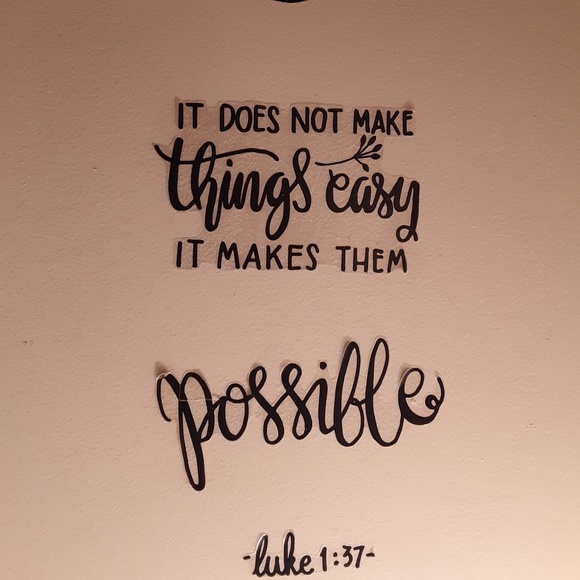 IT DOES NOT MAKE
things easy
IT MAKES THEM
possible
-luke 1:37-